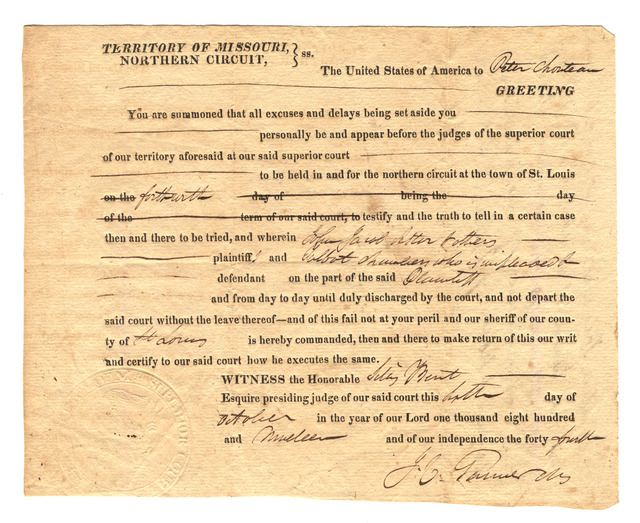 TERRITORY OF MISSOURI, } ss.
NORTHERN CIRCUIT,
The United States of America to Peter Chouteau
GREETING
You are summoned that all excuses and delays being set aside you
personally be and appear before the judges of the superior court
of our territory aforesaid at our said superior court
to be held in and for the northern circuit at the town of St. Louis
on the forthwith day of being the day
of the term of our said court, to testify and the truth to tell in a certain case
then and there to be tried, and wherein John Jacob Astor & others
plaintiffs and Talbot Chambers who is impleaded &
defendant on the part of the said Plaintiff
and from day to day until duly discharged by the court, and not depart the
said court without the leave thereof—and of this fail not at your peril and our sheriff of our coun-
ty of St Louis is hereby commanded, then and there to make return of this our writ
and certify to our said court how he executes the same.
WITNESS the Honorable Silas Bent
Esquire presiding judge of our said court this day of
October in the year of our Lord one thousand eight hundred
and Nineteen and of our independence the forty fourth